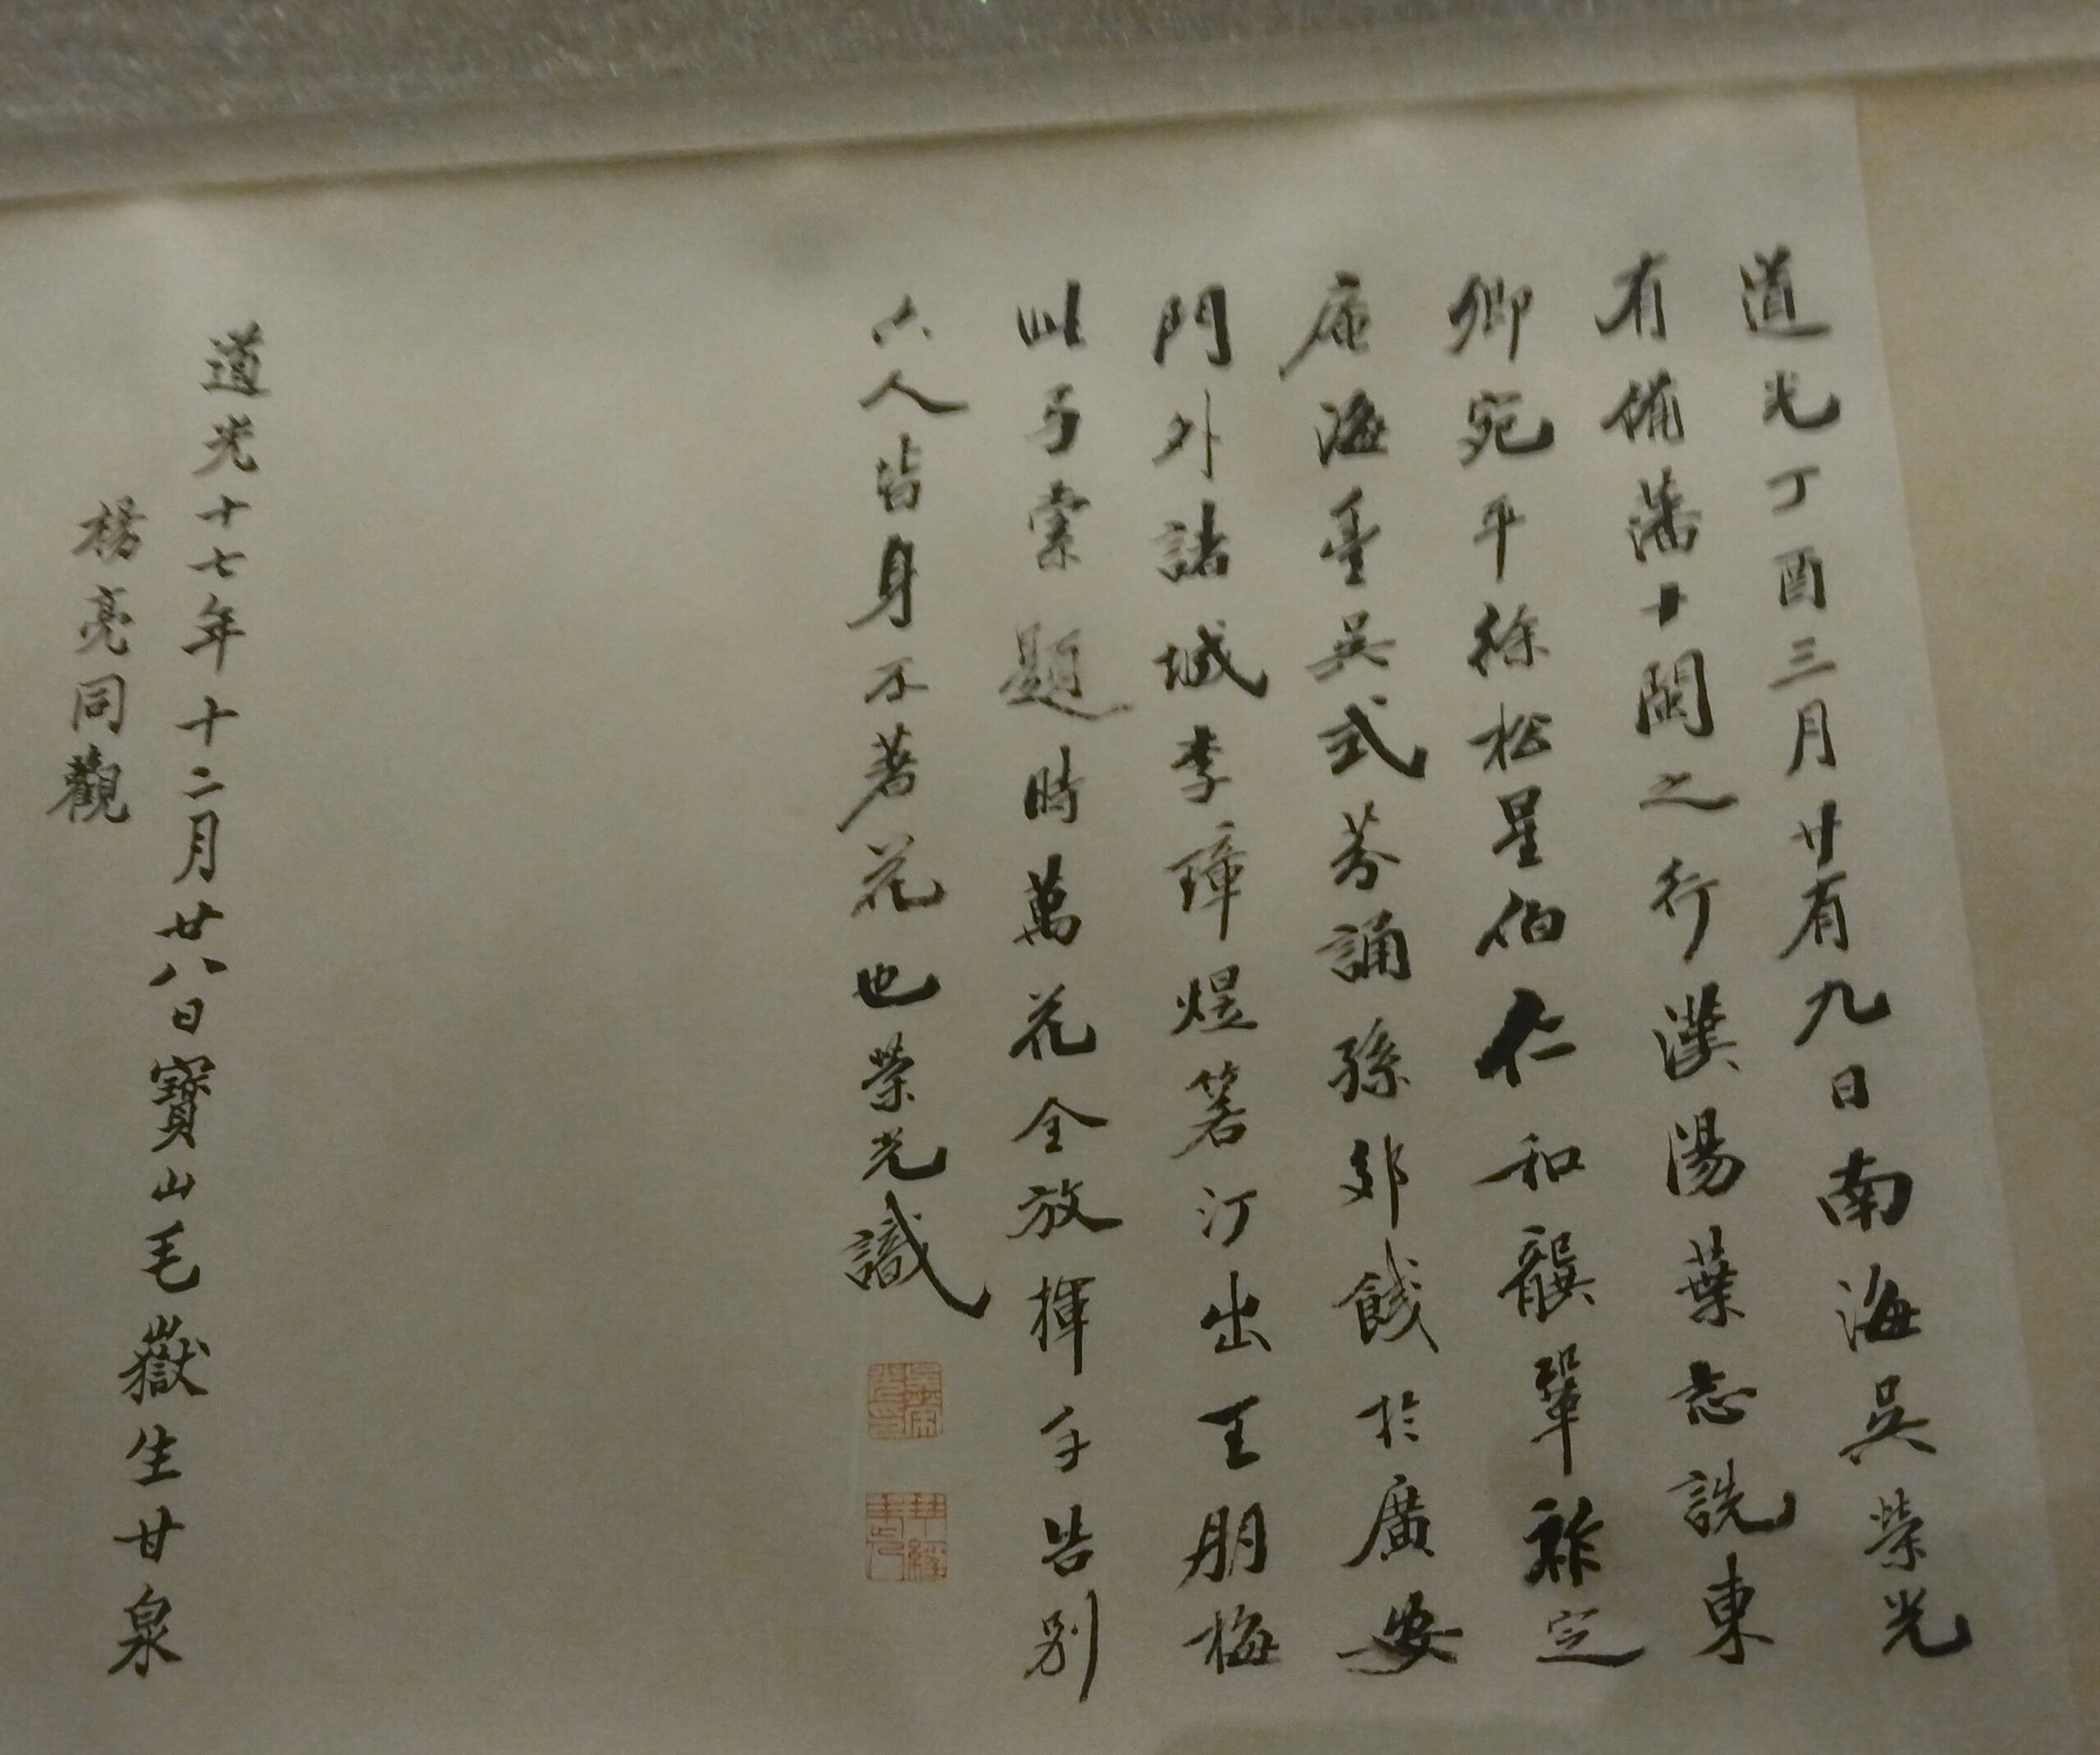 道光丁酉三月廿有九日南海吳榮光
有備藩十閩之行漢陽葉志詵東
卿宛平徐松星伯仁和龔鞏祚定
庵海豐吳式芬誦孫郊餞於廣安
門外諸城李璋煜箬汀出王朋梅
此弓索題時萬花全放揮手告別
六人皆身不著花也榮光識
道光十七年十二月廿八日寶山毛嶽生甘泉
楊亮同觀